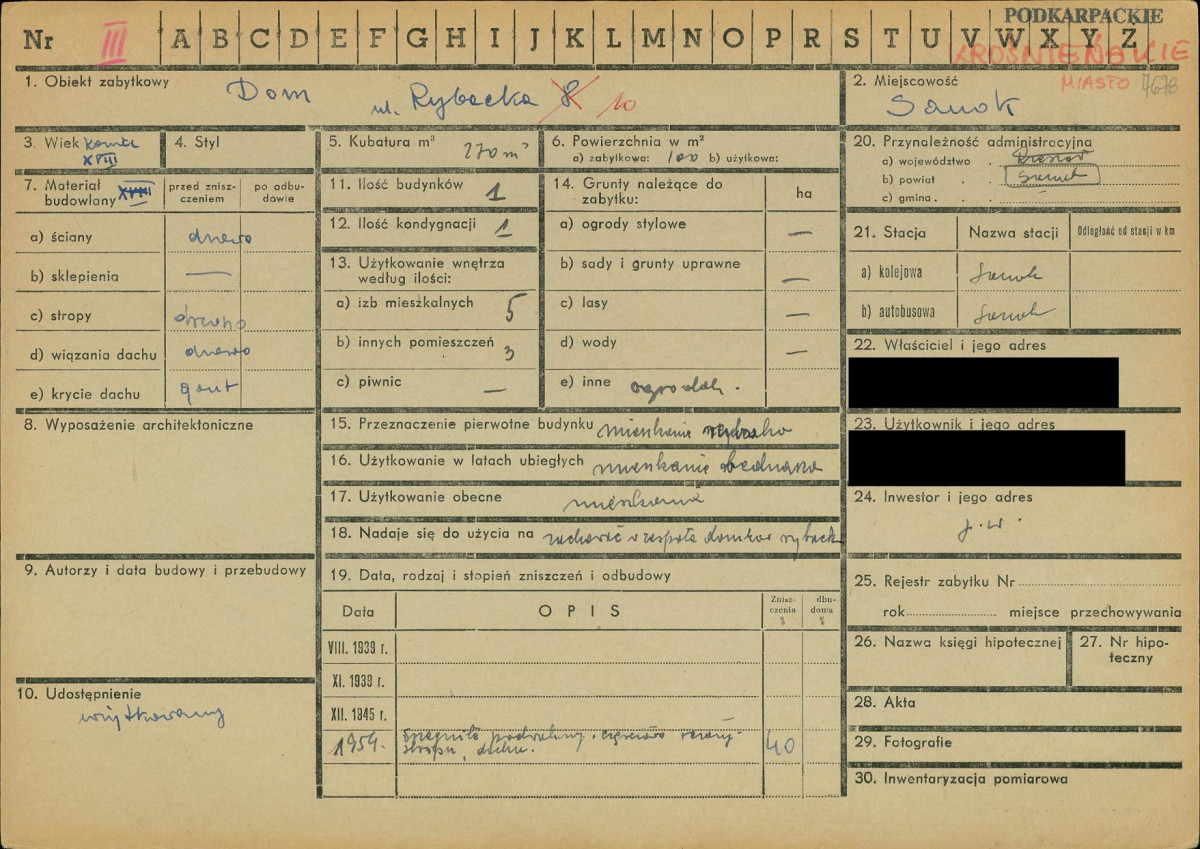 PODKARPACKIE
Nr III A B C D E F G H I J K L M N O P R S T U V W X Y Z
KROŚNIEŃSKIE
MIASTO 7678
1. Obiekt zabytkowy Dom ul. Rybacka 8 10
2. Miejscowość
Sanok
3. Wiek koniec
XVIII
4. Styl
5. Kubatura m³ 270 m³
6. Powierzchnia w m²
a) zabytkowa: 100 b) użytkowa:
7. Materiał budowlany XVIII
przed znisz-
czeniem
po odbu-
dowie
a) ściany drewno
b) sklepienia —
c) stropy drewno
d) wiązania dachu drewno
e) krycie dachu gont
8. Wyposażenie architektoniczne
9. Autorzy i data budowy i przebudowy
10. Udostępnienie
użytkowany
11. Ilość budynków 1
12. Ilość kondygnacji 1
13. Użytkowanie wnętrza
według ilości:
a) izb mieszkalnych 5
b) innych pomieszczeń 3
c) piwnic —
14. Grunty należące do
zabytku:
ha
a) ogrody stylowe —
b) sady i grunty uprawne —
c) lasy —
d) wody —
e) inne ogródek.
15. Przeznaczenie pierwotne budynku mieszkanie rybaka
16. Użytkowanie w latach ubiegłych mieszkanie bednarza
17. Użytkowanie obecne mieszkanie
18. Nadaje się do użycia na zachować w zespole domków ryback
19. Data, rodzaj i stopień zniszczeń i odbudowy
Data
OPIS
Znisz-
czenia
%
dbu-
dowa
%
VIII. 1939 r.
XI. 1939 r.
XII. 1945 r.
1959. podwaliny, częściowo ściany
stropu, dachu. 40
20. Przynależność administracyjna
a) województwo . Rzeszów
b) powiat . . Sanok
c) gmina . . .
21. Stacja
Nazwa stacji
Odległość od stacji w km
a) kolejowa Sanok
b) autobusowa Sanok
22. Właściciel i jego adres
23. Użytkownik i jego adres
24. Inwestor i jego adres
j.w.
25. Rejestr zabytku Nr
rok miejsce przechowywania
26. Nazwa księgi hipotecznej
27. Nr hipo-
teczny
28. Akta
29. Fotografie
30. Inwentaryzacja pomiarowa